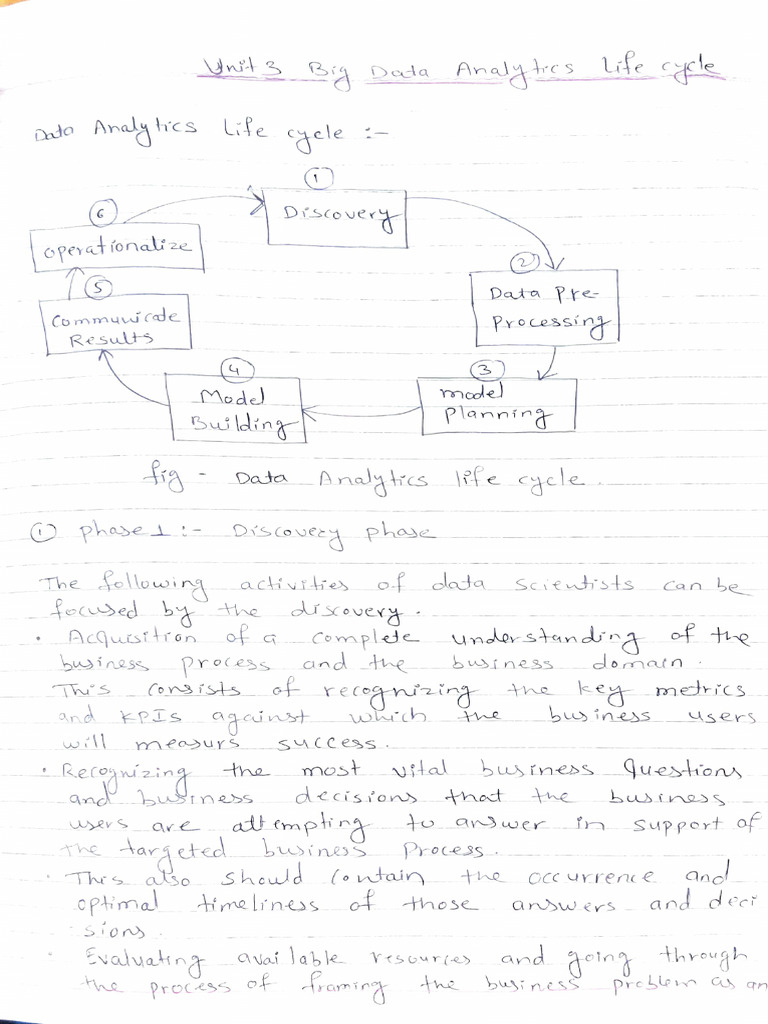 Unit 3 Big Data Analytics Life cycle
Data Analytics Life cycle :-
①
Discovery
②
Data Pre-
Processing
③
model
Planning
④
Model
Building
⑤
Communicate
Results
⑥
Operationalize
fig - Data Analytics life cycle.
① phase 1 :- Discovery phase
The following activities of data scientists can be
focused by the discovery.
• Acquisition of a complete understanding of the
business process and the business domain.
This consists of recognizing the key metrics
and KPIs against which the business users
will measurs success.
• Recognizing the most vital business Questions
and business decisions that the business
users are attempting to answer in support of
the targeted business Process.
• This also should contain the occurrence and
optimal timeliness of those answers and deci
sions.
• Evaluating available resources and going through
the process of framing the business problem as an